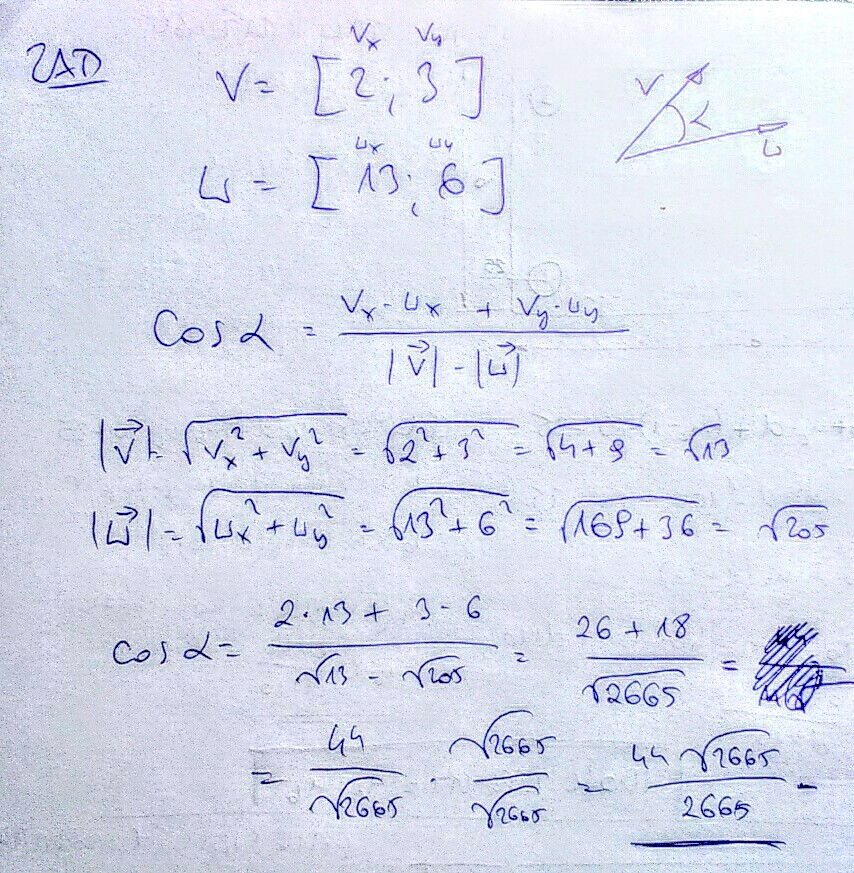 ZAD
Vx Vy
V = [2; 3]
ux uy
u = [13; 6]
V α u
cos α = (Vx · ux + Vy · uy) / (|V⃗| · |u⃗|)
|V⃗| = √(Vx² + Vy²) = √(2² + 3²) = √(4 + 9) = √13
|u⃗| = √(ux² + uy²) = √(13² + 6²) = √(169 + 36) = √205
cos α = (2 · 13 + 3 · 6) / (√13 · √205) = (26 + 18) / √2665 =
= 44 / √2665 · √2665 / √2665 = 44√2665 / 2665